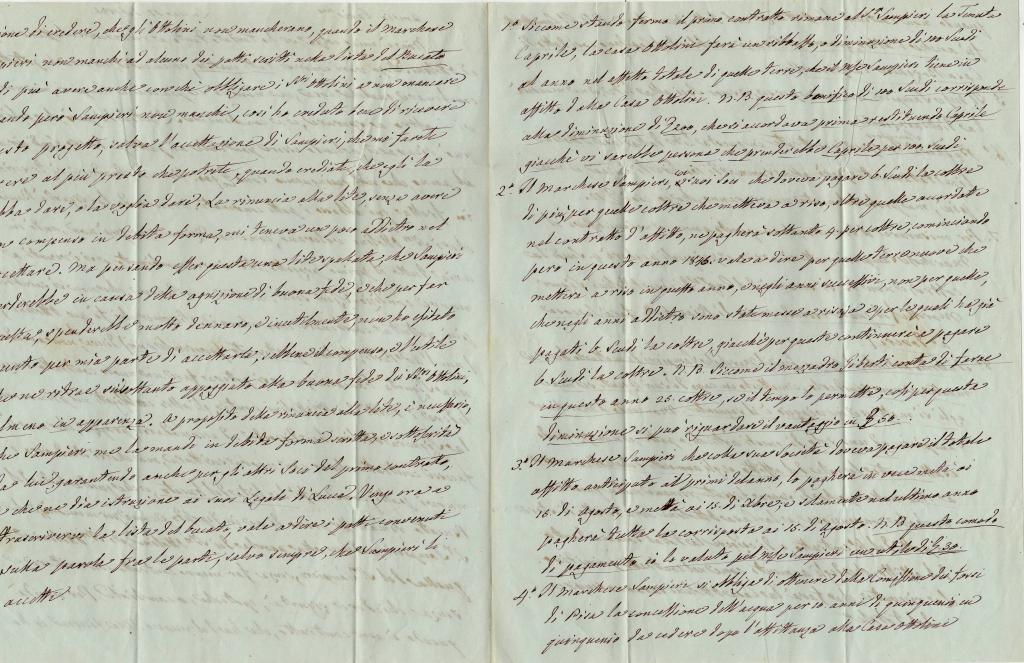 one di credere, che gl'Ottolini non mancheranno, quando il Marchese
pieri non manchi ad alcuno dei patti scritti nella lista del Bucato
di più avere anche con che obbligare i SSri Ottolini a non mancare
endo però Sampieri non manchi, così ho creduto bene di ricevere
sto progetto, salva l'accettazione di Sampieri, che mi farete
ere al più presto che potrete, quando crediate, che egli la
bba dare, o la voglia dare. La rinuncia alla lite, senza avere
n compenso in debita forma, mi teneva un poco addietro nel
cettare. Ma pensando esser questa una lite spallata, che Sampieri
erderebbe in causa della agnizione di buona fede, e che per far
celta, spenderebbe molto dennaro, e inutilmente, non ho esitato
uesto per mia parte di accettarla, sebbene il compenso, e l'utile
ne ritrae sia soltanto appoggiato alla buona fede dei SSri Ottolini,
lmeno in apparenza. A proposito della rinuncia alla lite, è necessario,
he Sampieri me la mandi in debita forma scritta, e sottoscritta
a lui garantendo anche per gli altri Soci del primo contratto,
e che ne dia istruzione ai suoi Legali di Lucca. Vengo ora a
trascrivervi la lista del bucato, vale a dire i patti convenuti
sulla parola fra le parti, salvo sempre, che Sampieri li
accetti.
1.o Siccome stando fermo il primo contratto rimane al Sr Sampieri la Tenuta
Caprile, la casa Ottolini farà un ribasso, o diminuzione di 100 Scudi
al anno nel affitto totale di quelle terre, che il Mse Sampieri tiene in
affitto dalla Casa Ottolini. N.B. questo bonifico di 100 Scudi corrisponde
alla diminuzione di, che si accordava prima restituendo Caprile
giacchè vi sarebbe persona che prenderebbe Caprile per 100 Scudi
2.o Il Marchese Sampieri, coi suoi Soci che doveva pagare 6 Scudi la coltre
di più per quelle coltre che metteva a riso, oltre quelle accordate
nel contratto d'affitto, ne pagherà soltanto 4 per coltre, cominciando
però in questo anno 1846. vale a dire per quelle terre nuove che
metterà a riso in questo anno, e negli anni successivi, non per quelle,
che negli anni addietro sono state messe a risaja e per le quali ha già
pagati 6 Scudi la coltre, giacchè per queste continuerà a pagare
6 Scudi la coltre. N.B. Siccome il mezzadro Giberti conta di farne
in questo anno 25 coltre, se il tempo lo permette, così in questa
diminuzione si può riguardare il vantaggio in 50.
3.o Il Marchese Sampieri che colla sua Società doveva pagare il totale
affitto anticipato al primi del anno, lo pagherà in vece metà ai
15. di Agosto, e metà ai 15. di Xbre, e solamente nel ultimo anno
pagherà tutta la corrisposta ai 15. di Agosto. N.B. questo comodo
di pagamento io lo valuto pel Mse Sampieri un utile di 30.
4.o Il Marchese Sampieri si obbliga di ottenere dalla Comissione dei fossi
di Pisa la concessione dell'acqua per 10 anni di quinquenio in
quinquenio da cedere dopo l'affittanza alla Casa Ottolini